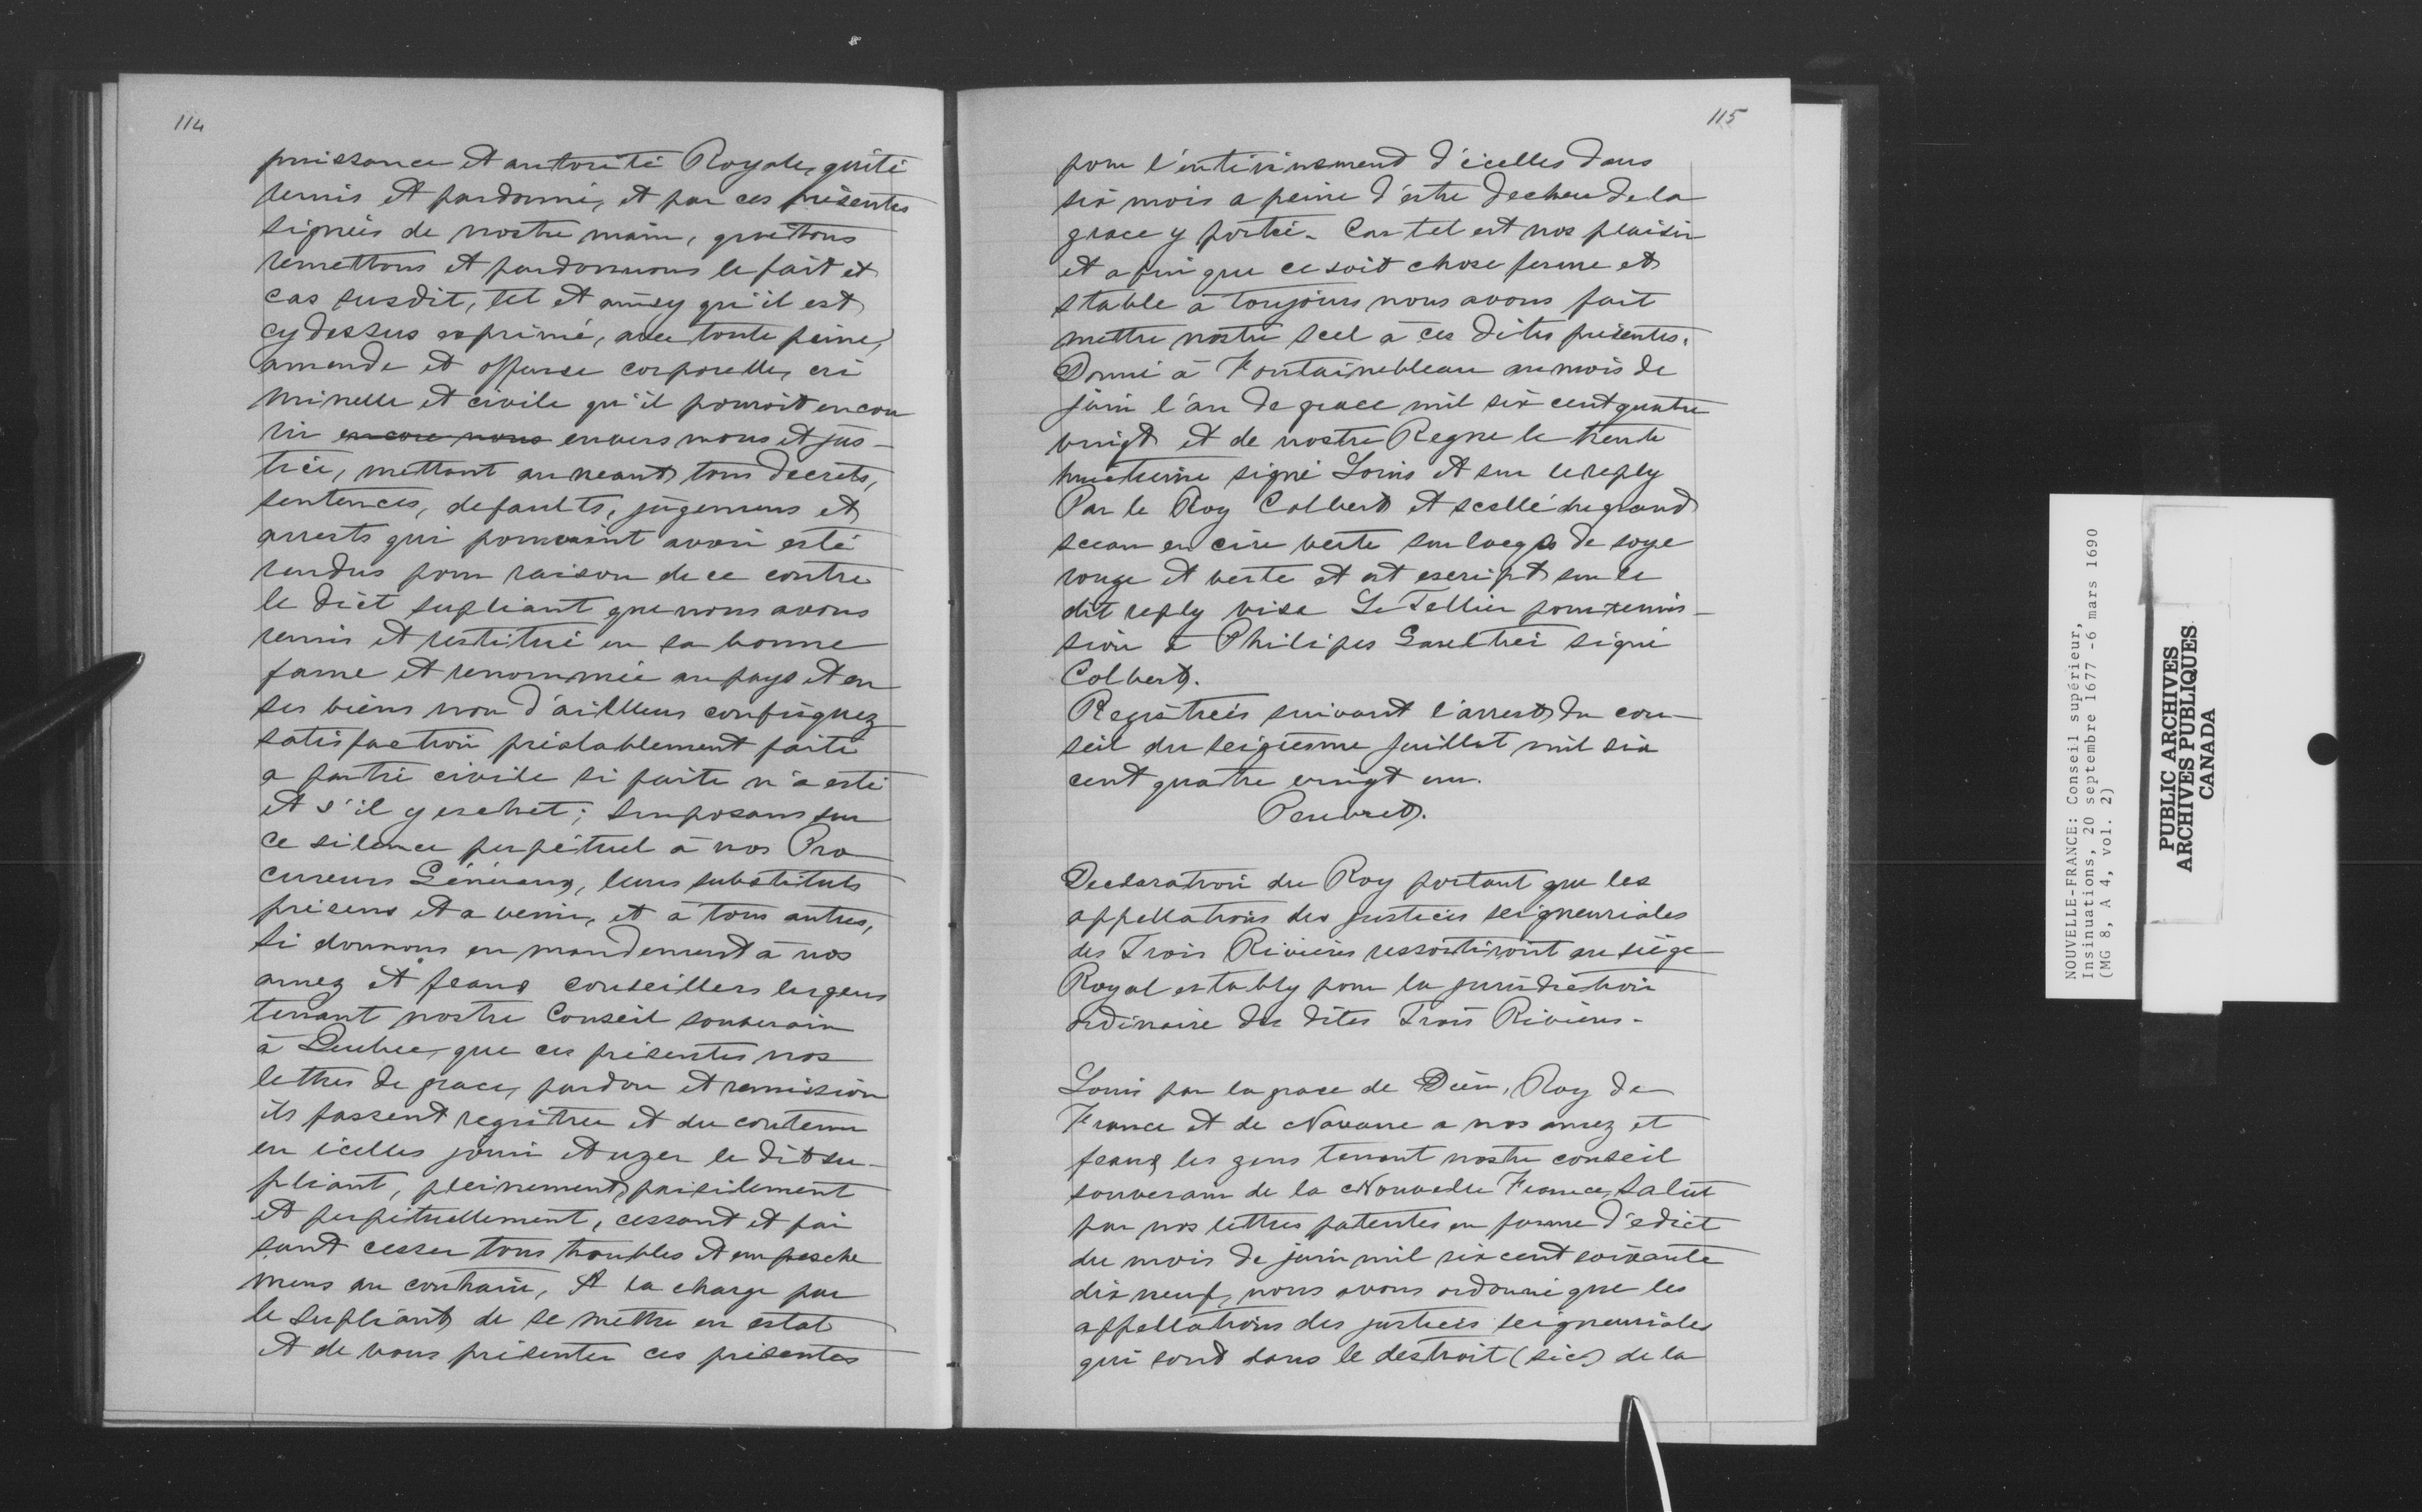 114
puissance et autorité Royale, quité
remis et pardonné, et par ces présentes
signées de nostre main, quittons
remettons et pardonnons le fait et
cas susdit, tel et ainsy qu'il est
cy dessus exprimé, avec toute peine,
amende et offense corporelle, cri
minelle et civile qu'il pouroit encou
rir encore nous envers nous et jus-
tice, mettant au neant tous decrets,
sentences, defaults, jugemens et
arrests qui pouroient avoir esté
rendus pour raison de ce contre
le dict supliant que nous avons
remis et restitué en sa bonne
fame et renommée au pays et en
ses biens non d'ailleurs confisquez
satisfaction préalablement faite
a partie civile si faite n'a esté
et s'il y eschet; Imposans sur
ce silence perpétuel à nos Pro
cureurs Généraux, leurs substituts
présens et a venir, et à tous autres,
Si donnons en mandement à nos
amez et feaux conseillers les gens
tenant nostre Conseil souverain
à Quebec, que ces présentes nos
lettres de grace, pardon et remission
ils fassent registrer et du contenu
en icelles jouir et uzer le dit su-
pliant, pleinement, paisiblement
et perpétuellement, cessant et fai
sant cesser tous troubles et empesche
mens au contraire, A la charge par
le supliant de se mettre en estat
et de vous présenter ces présentes
115
pour l'entérinement d'icelles dans
six mois a peine d'estre decheu de la
grace y portée. Car tel est nos plaisir
et afin que ce soit chose ferme et
stable à toujours nous avons fait
mettre nostre scel à ces dites présentes.
Donné à Fontainebleau au mois de
juin l'an de grace mil six cent quatre
vingt et de nostre Regne le trente
huictieme signé Louis et sur le reply
Par le Roy Colbert et scellé du grand
sceau en cire verte sur lacqs de soye
rouge et verte et est escript sur le
dit reply visa Le Tellier pour remis-
sion à Philipes Gaultier signé
Colbert.
Registrées suivant l'arrest du con-
seil du seiziesme juillet mil six
cent quatre vingt un.
Peuvret.
Declaration du Roy portant que les
appellations des justices seigneuriales
des Trois Rivières ressortiront au siège
Royal estably pour la jurisdiction
ordinaire des dites Trois Rivières.
Louis par la grace de Dieu, Roy de
France et de Navarre a nos amez et
feaux les gens tenant nostre conseil
souverain de la Nouvelle France, Salut
par nos lettres patentes en forme d'edict
du mois de juin mil six cent soixante
dix neuf, nous avons ordonné que les
appellations des justices seigneuriales
qui sont dans le destroit (sic) de la
NOUVELLE-FRANCE: Conseil supérieur,
Insinuations, 20 septembre 1677 -6 mars 1690
(MG 8, A 4, vol. 2)
PUBLIC ARCHIVES
ARCHIVES PUBLIQUES
CANADA